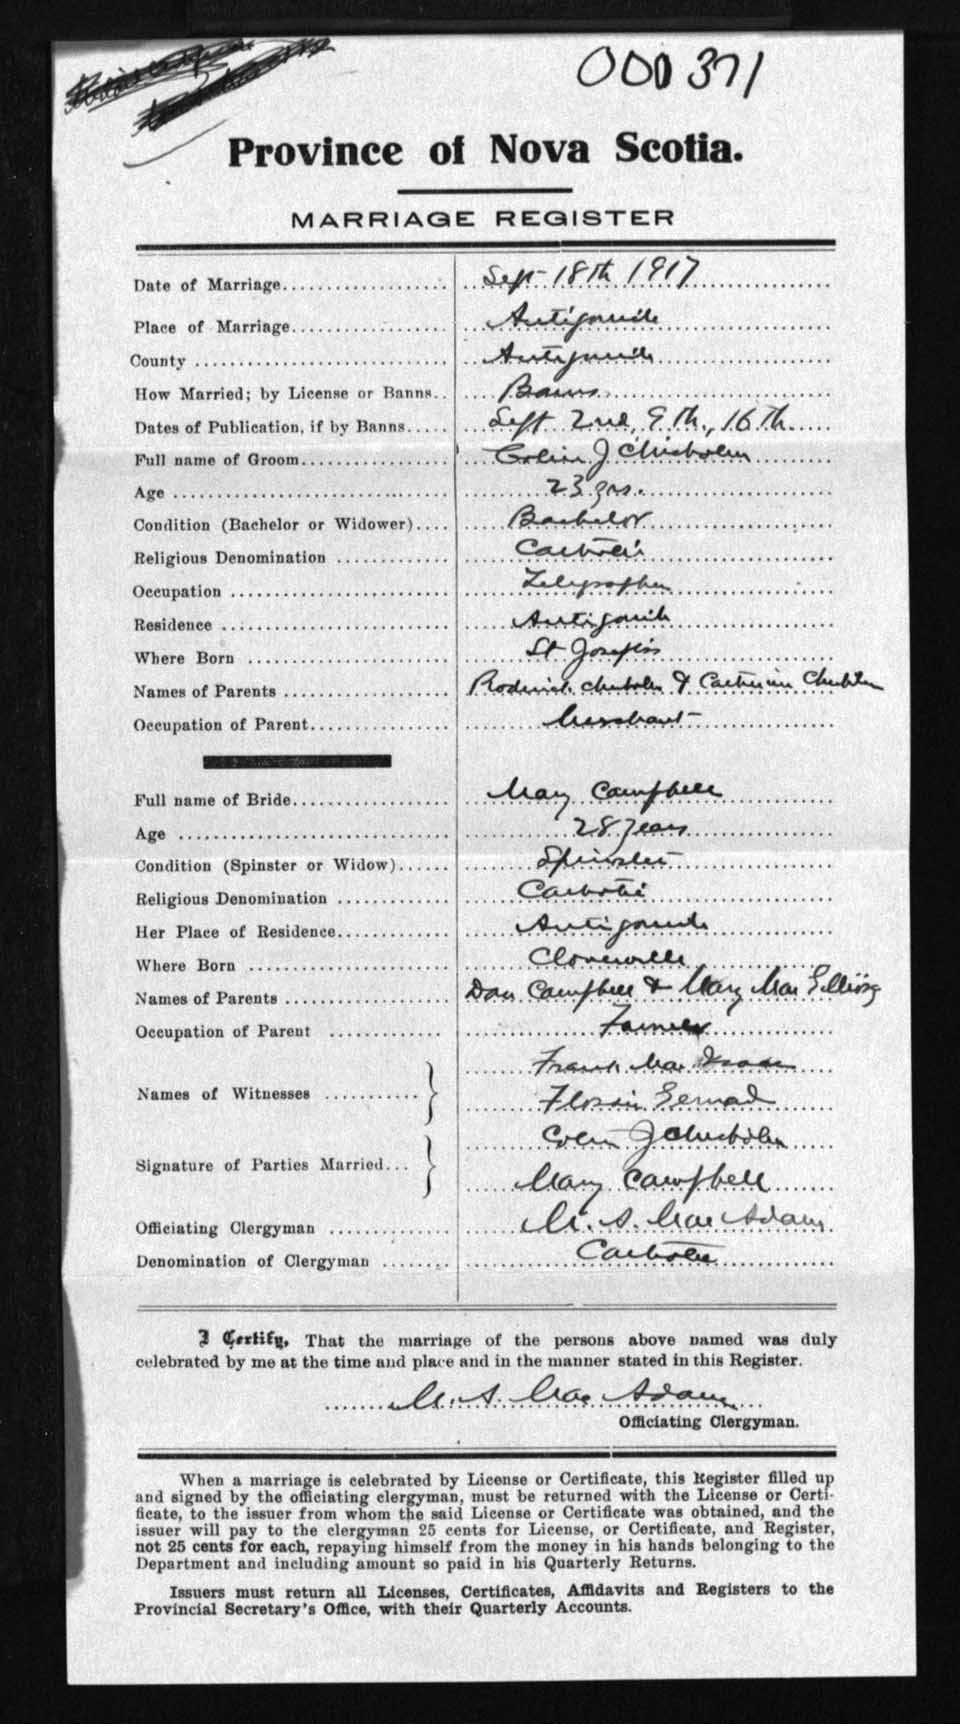 000371
Province of Nova Scotia.
MARRIAGE REGISTER
Date of Marriage Sept 18th 1917
Place of Marriage Antigonish
County Antigonish
How Married; by License or Banns Banns
Dates of Publication, if by Banns Sept 2nd, 9th, 16th
Full name of Groom Colin J Chisholm
Age 23 yrs.
Condition (Bachelor or Widower) Bachelor
Religious Denomination Catholic
Occupation Telegrapher
Residence Antigonish
Where Born St Joseph's
Names of Parents Roderick Chisholm & Catherine Chisholm
Occupation of Parent Merchant
Full name of Bride Mary Campbell
Age 28 years
Condition (Spinster or Widow) Spinster
Religious Denomination Catholic
Her Place of Residence Antigonish
Where Born Cloverville
Names of Parents Dan Campbell & Mary Mac
Occupation of Parent Farmer
Frank Mac Isaac
Names of Witnesses
Colin J Chisholm
Signature of Parties Married
Mary Campbell
Officiating Clergyman M. A. Mac Adam
Denomination of Clergyman Catholic
I Certify, That the marriage of the persons above named was duly
celebrated by me at the time and place and in the manner stated in this Register.
M. A. Mac Adam
Officiating Clergyman.
When a marriage is celebrated by License or Certificate, this Register filled up
and signed by the officiating clergyman, must be returned with the License or Certi-
ficate, to the issuer from whom the said License or Certificate was obtained, and the
issuer will pay to the clergyman 25 cents for License, or Certificate, and Register,
not 25 cents for each, repaying himself from the money in his hands belonging to the
Department and including amount so paid in his Quarterly Returns.
Issuers must return all Licenses, Certificates, Affidavits and Registers to the
Provincial Secretary's Office, with their Quarterly Accounts.